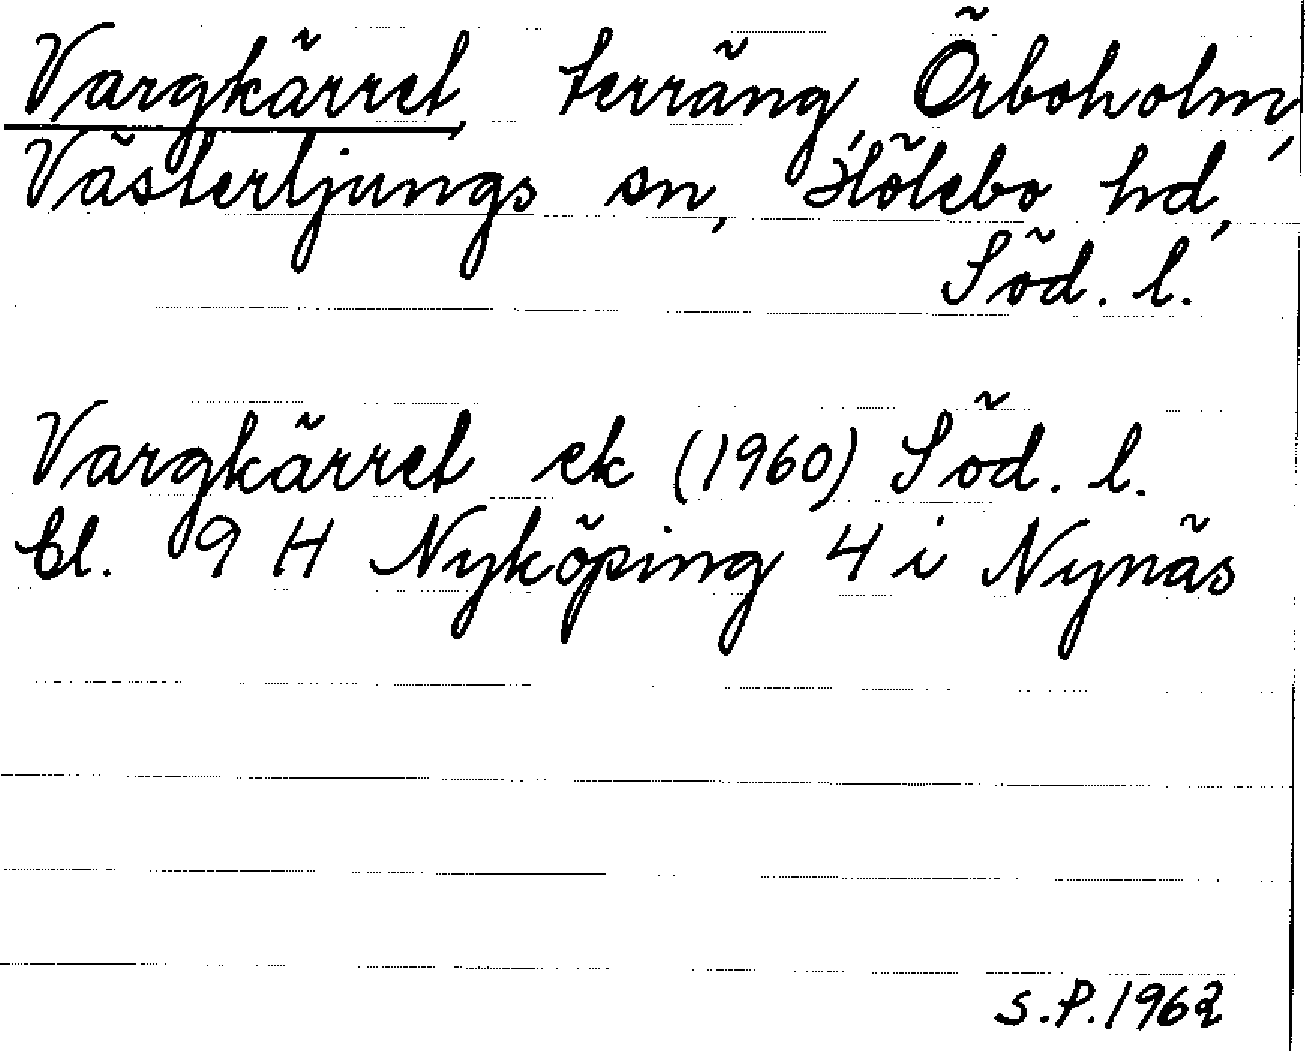 Vargkärret, terräng, Örboholm,
Västerljungs sn, Hölebo hd,
Söd. l.
Vargkärret ek (1960) Söd. l.
bl. 9 H Nyköping 4 i Nynäs
S.P. 1962